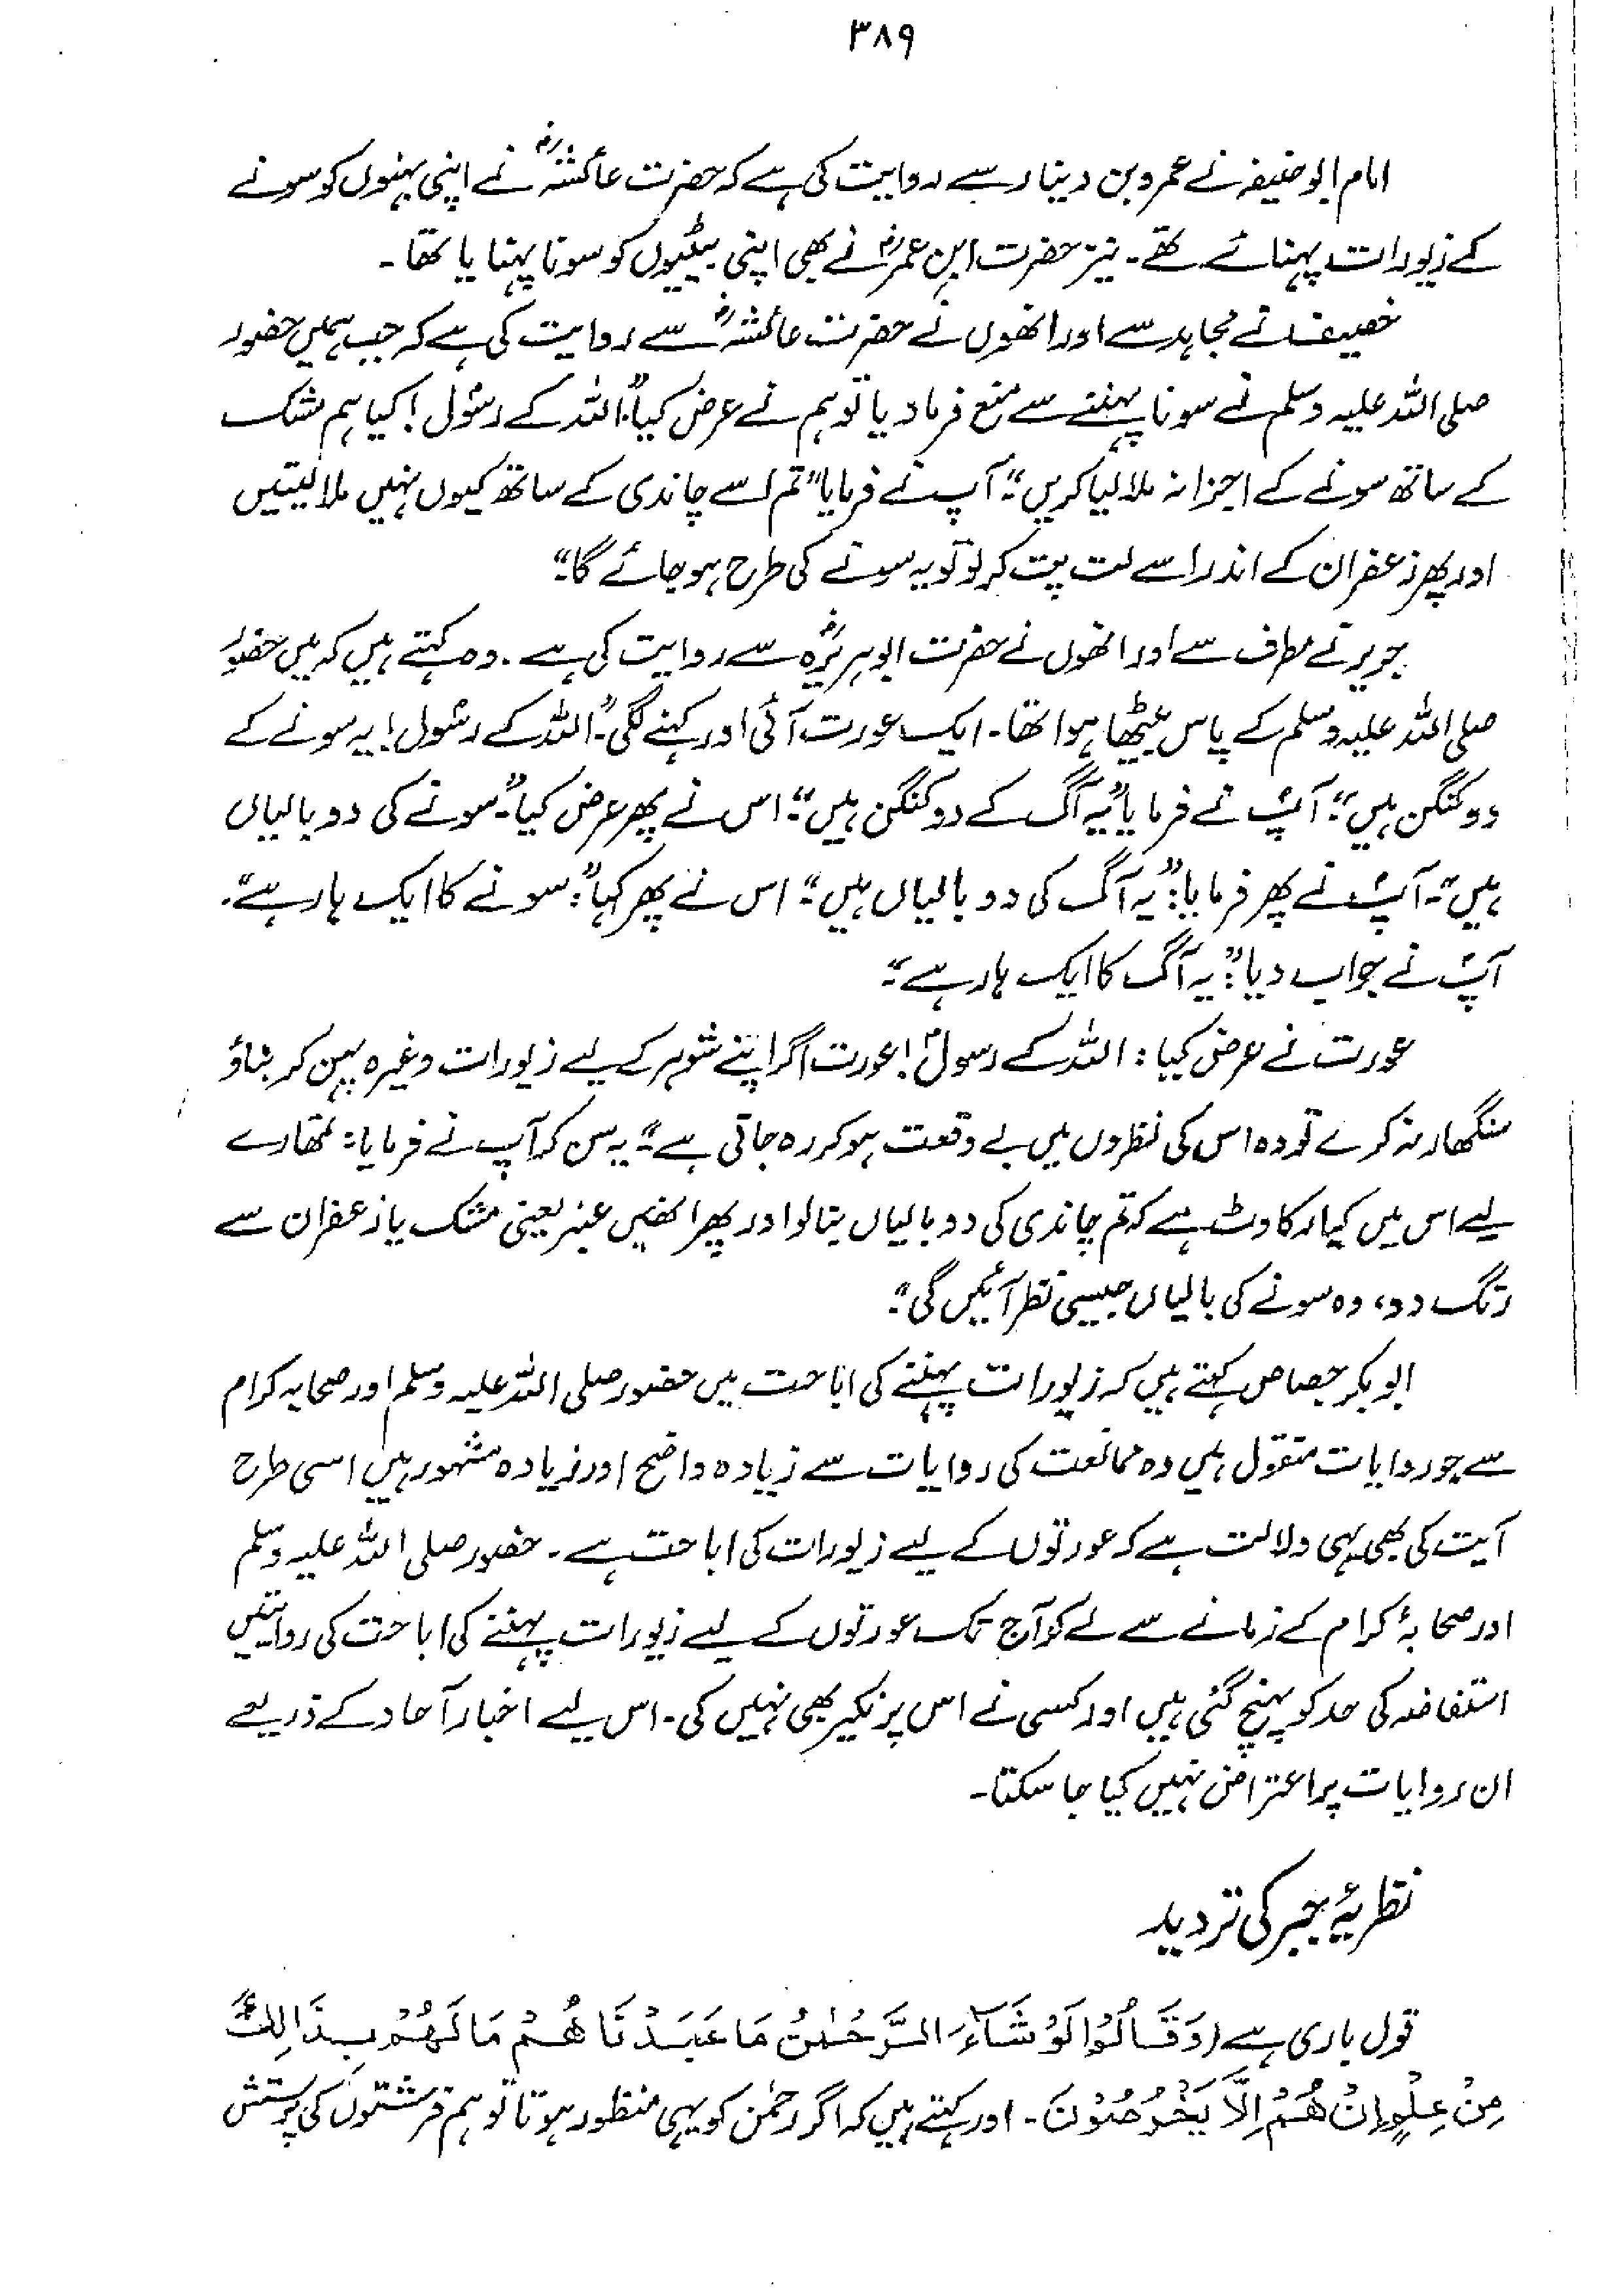 ۳۸۹
امام ابوحنیفہ نے عمرو بن دینار سے روایت کی ہے کہ حضرت عائشہؓ نے اپنی بہنوں کو سونے
کے زیورات پہنائے تھے۔ نیز حضرت ابن عمرؓ نے بھی اپنی بیٹیوں کو سونا پہنایا تھا۔
خصیف نے مجاہد سے اور انھوں نے حضرت عائشہؓ سے روایت کی ہے کہ جب ہمیں حضور
صلی اللہ علیہ وسلم نے سونا پہننے سے منع فرما دیا تو ہم نے عرض کیا: "اللہ کے رسول! کیا ہم مشک
کے ساتھ سونے کے اجزا نہ ملا لیا کریں"۔ آپ نے فرمایا "تم اسے چاندی کے ساتھ کیوں نہیں ملا لیتیں
اور پھر زعفران کے اندر اسے لت پت کر لو تو یہ سونے کی طرح ہو جائے گا"۔
جریر نے مطرف سے اور انھوں نے حضرت ابوہریرہؓ سے روایت کی ہے۔ وہ کہتے ہیں کہ میں حضور
صلی اللہ علیہ وسلم کے پاس بیٹھا ہوا تھا۔ ایک عورت آئی اور کہنے لگی۔ "اللہ کے رسول! یہ سونے کے
دو کنگن ہیں"۔ آپؐ نے فرمایا "یہ آگ کے دو کنگن ہیں"۔ اس نے پھر عرض کیا"۔ سونے کی دو بالیاں
ہیں"۔ آپؐ نے پھر فرمایا: "یہ آگ کی دو بالیاں ہیں"۔ اس نے پھر کہا": سونے کا ایک ہار ہے"۔
آپؐ نے جواب دیا": یہ آگ کا ایک ہار ہے"۔
عورت نے عرض کیا: اللہ کے رسولؐ! عورت اگر اپنے شوہر کے لیے زیورات وغیرہ پہن کر بناؤ
سنگھار نہ کرے تو وہ اس کی نظروں میں بے وقعت ہو کر رہ جاتی ہے"۔ یہ سن کر آپ نے فرمایا: تمھارے
لیے اس میں کیا رکاوٹ ہے کہ تم چاندی کی دو بالیاں بنا لو اور پھر انھیں عنبر یعنی مشک یا زعفران سے
رنگ دو، وہ سونے کی بالیاں جیسی نظر آئیں گی"۔
ابوبکر جصاص کہتے ہیں کہ زیورات پہننے کی اباحت میں حضور صلی اللہ علیہ وسلم اور صحابہ کرام
سے جو روایات منقول ہیں وہ ممانعت کی روایات سے زیادہ واضح اور زیادہ مشہور ہیں اسی طرح
آیت کی بھی یہی دلالت ہے کہ عورتوں کے لیے زیورات کی اباحت ہے۔ حضور صلی اللہ علیہ وسلم
اور صحابۂ کرام کے زمانے سے لے کر آج تک عورتوں کے لیے زیورات پہننے کی اباحت کی روایتیں
استفاضہ کی حد کو پہنچ گئی ہیں اور کسی نے اس پر نکیر بھی نہیں کی۔ اس لیے اخبار آحاد کے ذریعے
ان روایات پر اعتراض نہیں کیا جا سکتا۔
نظریۂ جبر کی تردید
قول باری ہے (وَقَالُوْا لَوْ شَآءَ الرَّحْمٰنُ مَا عَبَدْنَا هُمْ مَا لَهُمْ بِذَالِكَ
مِنْ عِلْمٍ اِنْ هُمْ اِلَّا يَخْرُصُوْنَ۔ اور کہتے ہیں کہ اگر رحمٰن کو یہی منظور ہوتا تو ہم فرشتوں کی پرستش